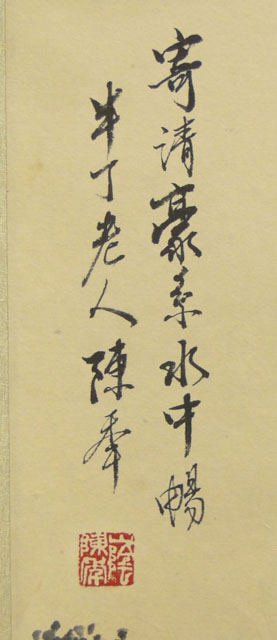 寄清豪素水中暢
半丁老人陳年
山陰
陳年